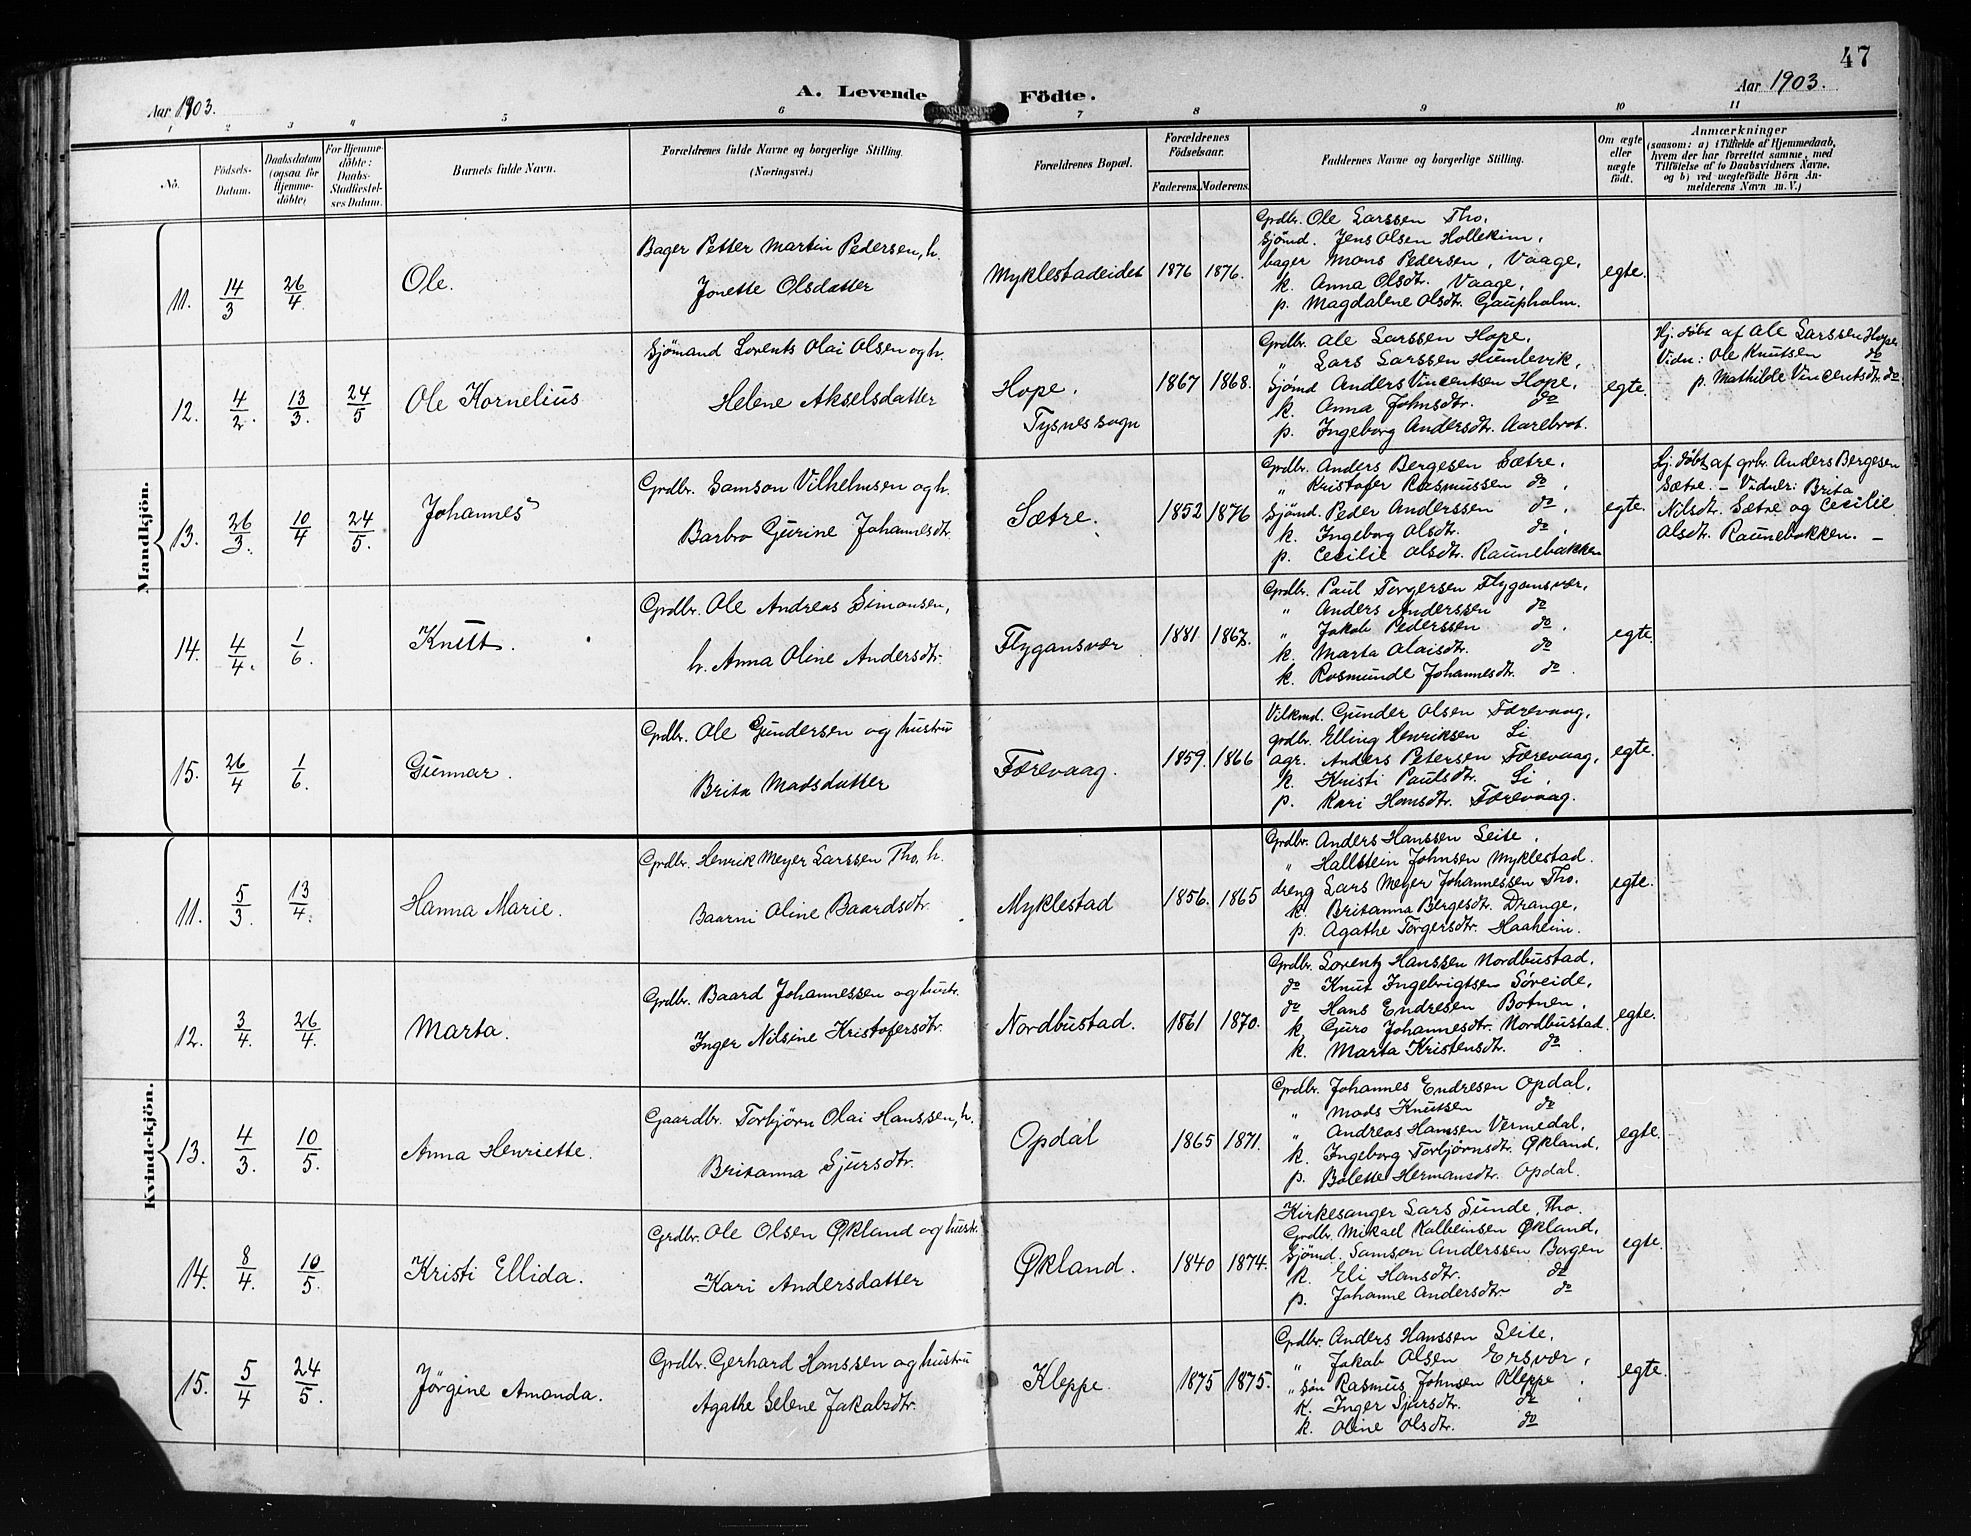 47
Aar 1903.
A. Levende Födte.
Aar 1903.
1 2 3 4 5 6 7 8 9 10 11
No.
Födsels-Datum.
Daabsdatum (ogsaa for Hjemme-döbte)
For Hjemme-döbte: Daabs-Stadfæstel-ses Datum.
Barnets fulde Navn.
Forældrenes fulde Navne og borgerlige Stilling.
(Næringsvei.)
Forældrenes Bopæl.
Forældrenes Födselsaar.
Faderens. Moderens.
Faddernes Navne og borgerlige Stilling.
Om ægte eller uægte födt.
Anmærkninger
(saasom: a) i Tilfælde af Hjemmedaab,
hvem der har forrettet samme, med
Tilföielse af to Daabsvidners Navne,
og b) ved uægtefödte Börn An-
melderens Navn m. V.)
Mandkjön.
11. 14/3 26/4 Ole.
Bager Petter Martin Pedersen, h.
Jonette Olsdatter
Myklestadeidet 1876 1876.
Grdbr. Ole Larssen Tho.
Sjömd. Jens Olsen Hollekim,
bager Mons Pedersen, Vaage,
k. Anna Olsdt. Vaage,
p. Magdalene Olsdtr. Gaupholm.
egte.
12. 4/2. 13/3. 24/5 Ole Kornelius
Sjömand Lorents Olai Olsen og h.
Helene Akselsdatter
Hope,
Tysnes sogn
1867 1868.
Grdbr. Ole Larssen Hope,
" Lars Larssen Humlevik,
Sjömd Anders Vincentsen Hope,
k. Anna Johnsdtr. do
p. Ingeborg Andersdtr. Aarebrot.
egte.
Hj. döbt af Ole Larssen Hope.
Vidn: Ole Knutsen do
p. Mathilde Vincentsdtr. do.
13. 26/3. 10/4 24/5. Johannes
Grdbr. Samson Vilhelmsen og h.
Barbro Gurine Johannesdtr.
Sætre. 1852 1876
Grdbr. Anders Bergesen Sætre,
" Kristofer Rasmussen do,
Sjömd. Peder Anderssen do,
k. Ingeborg Olsdtr. do,
p. Cecilie Olsdtr. Raunebakken
egte.
Hj. döbt af grbr. Anders Bergesen
Sætre. – Vidner: Brita
Nilsdt. Sætre og Cecilie
Olsdtr. Raunebakken. –
14. 4/4. 1/6. Knut.
Grdbr. Ole Andreas Simonsen,
h. Anna Oline Andersdtr.
Flygansvær 1881 1867.
Grdbr. Paul Torgersen Flygansvær,
" Anders Anderssen do
" Jakob Pederssen do,
k. Marta Olaisdtr. do
k. Rosmunde Johannesdtr. do.
egte.
15. 26/4 1/6. Gunnar.
Grdbr. Ole Gundersen og hustru
Brita Madsdatter
Færevaag. 1859. 1866
Vilkmd. Gunder Olsen Færevaag,
grdbr. Elling Henriksen Li
agr. Anders Petersen Færevaag,
k. Kristi Paulsdtr. Li,
p. Kari Hansdtr. Færevaag.
egte.
Kvindekjön.
11. 5/3. 13/4. Hanna Marie.
Grdbr. Henrik Meyer Larssen Tho, h.
Baarni Oline Baardsdtr.
Myklestad 1856. 1865
Grdbr. Anders Hanssen Leite,
" Hallstein Johnsen Myklestad.
dreng Lars Meyer Johannessen Tho.
k. Britanna Bergesdtr. Drange,
p. Agathe Torgersdtr. Haaheim.
egte.
12. 3/4. 26/4. Marta.
Grdbr. Baard Johannessen og hustr.
Inger Nilsine Kristofersdtr.
Nordbustad. 1861 1870.
Grdbr. Lorentz Hanssen Nordbustad,
do Knut Ingebrigtsen Söreide,
do Hans Endresen Botnen,
k. Guro Johannesdtr. Nordbustad.
k. Marta Kristensdtr. do.
egte.
13. 4/3. 10/5. Anna Henriette.
Gaardbr. Torbjørn Olai Hanssen, h.
Britanna Sjursdtr.
Opdal 1865 1871.
Grdbr. Johannes Endresen Opdal,
" Mads Knutsen do
" Andreas Hansen Vermedal,
k. Ingeborg Torbjørnsdtr. Økland,
p. Bolette Hermansdtr. Opdal.
egte.
14. 8/4. 10/5. Kristi Ellida.
Grdbr. Ole Olsen Økland og hustr.
Kari Andersdatter
Økland. 1840 1874.
Kirkesanger Lars Sunde, Tho.
Grdbr. Mikael Kalheimsen Økland,
Sjömd. Samson Anderssen Bergen
k. Eli Hansdtr. do
p. Johanne Andersdtr. do
egte.
15. 5/4 24/5. Jörgine Amanda.
Grdbr. Gerhard Hanssen og hustru
Agathe Selene Jakobsdtr.
Kleppe. 1875 1875.
Grdbr. Anders Hanssen Leite,
" Jakob Olsen Ersvær,
" sön Rasmus Johnsen Kleppe,
k. Inger Sjursdtr. do
k. Oline Olsdtr. do
egte.